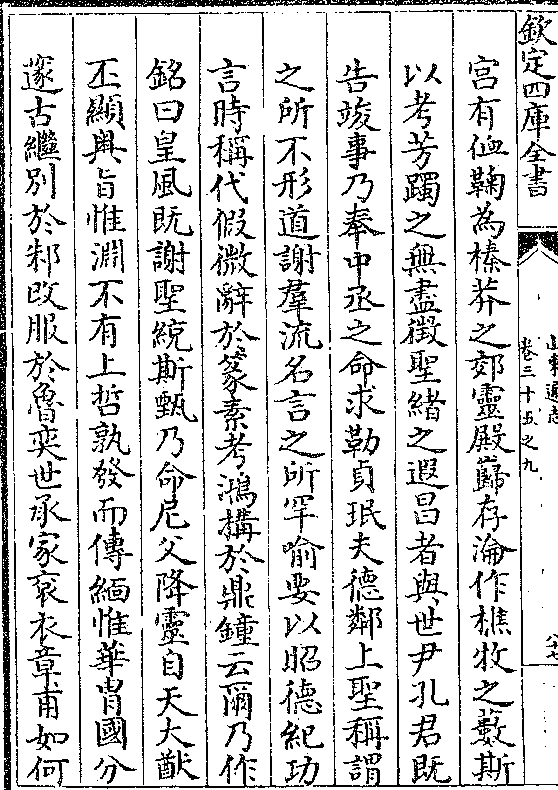 欽定四庫全書
卷三十五之九
宫有侐鞠為榛莽之郊靈殿巋存淪作樵牧之藪斯
以考芳躅之無盡徴聖緒之遐昌者與世尹孔君既
告竣事乃奉中丞之命求勒貞珉夫德鄰上聖稱謂
之所不形道謝羣流名言之所罕喻要以昭德紀功
言時稱代假微辭於篆素考鴻搆於鼎鐘云爾乃作
銘曰皇風既謝聖統斯甄乃命尼父降靈自天大猷
丕顯奥旨惟淵不有上哲孰發而傳緬惟華胄國分
邃古繼别於邾改服於魯奕世承家裒衣章甫如何